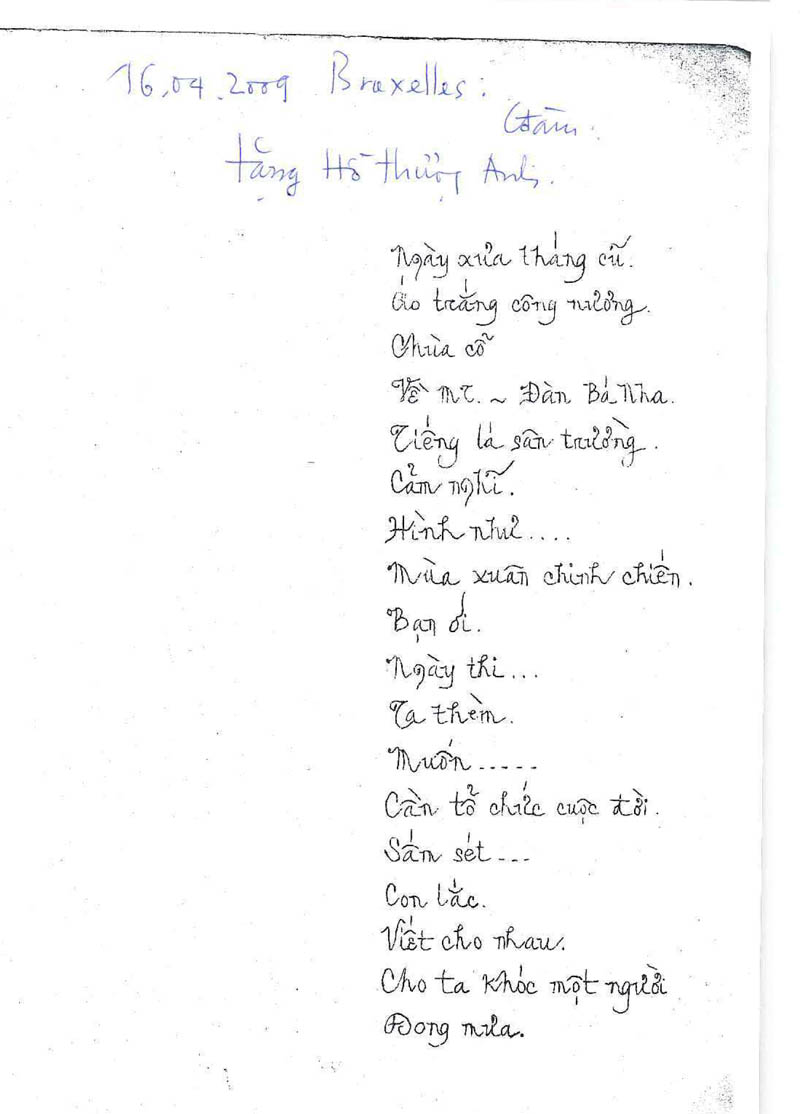 16.04.2009 Bruxelles:
Đàm.
tặng Hồ Thượng Anh.
Ngày xưa tháng cũ.
Áo trắng công nương.
Chùa cổ
Về MT. ~ Đàn Bá Nha.
Tiếng lá sân trường.
Cảm nghĩ.
Hình như....
Mùa xuân chinh chiến.
Bạn ơi.
Ngày thi...
Ta thèm.
Muốn.....
Cần tổ chức cuộc đời.
Sấm sét...
Con lắc.
Viết cho nhau.
Cho ta khóc một người
Đong mưa.